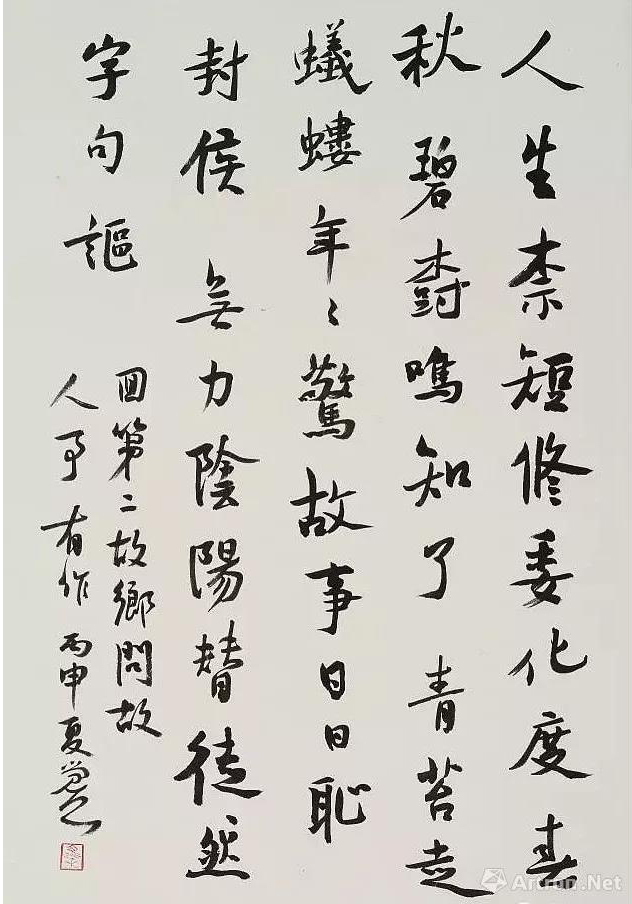 人生柰短修委化度春
秋碧樹鳴知了青苔走
蟻螻年々驚故事日日恥
封侯無力陰陽替徒然
字句謳
回第二故鄉問故
人事有作丙申夏
Artron.Net